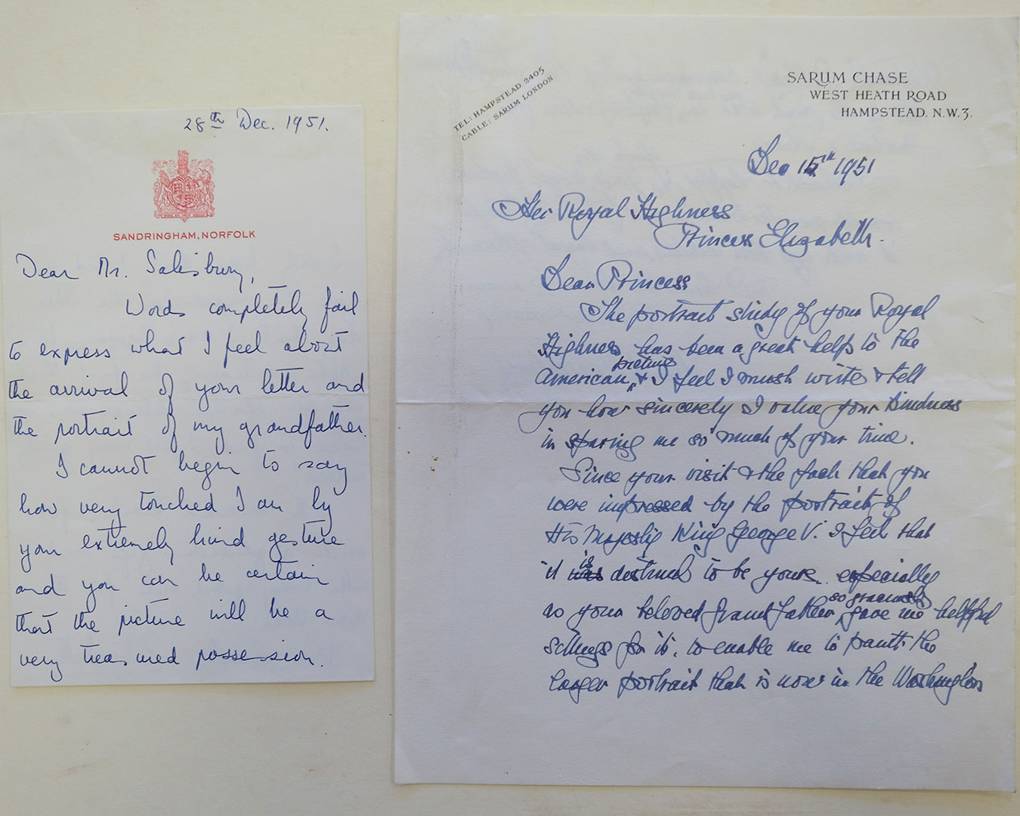 28th Dec. 1951.
SANDRINGHAM, NORFOLK
Dear Mr. Salisbury,
Words completely fail
to express what I feel about
the arrival of your letter and
the portrait of my grandfather.
I cannot begin to say
how very touched I am by
your extremely kind gesture
and you can be certain
that the picture will be a
very treasured possession.
TEL: HAMPSTEAD 2405
CABLE: SARUM LONDON
SARUM CHASE
WEST HEATH ROAD
HAMPSTEAD. N.W.3.
Dec 15th 1951
Her Royal Highness
Princess Elizabeth.
Dear Princess
The portrait study of your Royal
Highness has been a great help to the
American picture, & I feel I must write & tell
you how sincerely I value your kindness
in sparing me so much of your time.
Since your visit & the fact that you
were impressed by the portrait of
His Majesty King George V. I feel that
it is destined to be yours especially
so your beloved Grandfather so graciously gave me helpful
sittings for it, to enable me to paint the
larger portrait that is now in the Washington